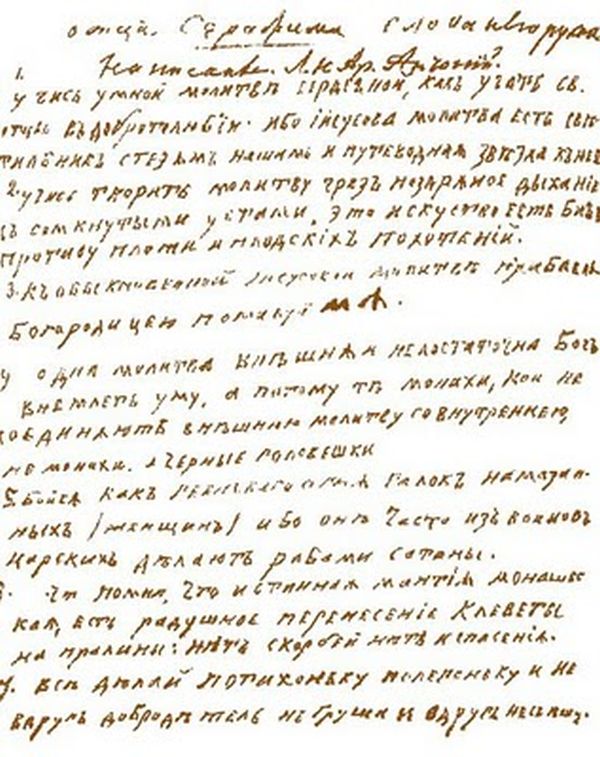 отца. Серафима
Написане. Л. н Ар. Антоній?
1. учись умной молитвѣ сердечной, какъ учатъ св.
отцы въ добротолюбіи. ибо Іисусова молитва есть свѣ
тильникъ стезямъ нашимъ и путеводная звѣзда къ небу
2. учись творить молитву чрезъ ноздряное дыханіе
съ сомкнутыми устами, это искуство есть бичъ
противу плоти и плодскіхъ похотеній.
3. къ обыкновенной Іисусовой молитвѣ прибавля
Богородицею помилуй мя.
одна молитва внѣшняя недостаточна Богъ
внемлетъ уму, а потому тѣ монахи, кои не
соединяютъ внѣшнию молитву со внутреннею,
не монахи. а черные головешки
5. Бойся какъ геенскаго огня галокъ намазан-
ныхъ (женщинъ) ибо онѣ часто изъ воиновъ
царскихъ дѣлаютъ рабами сатаны.
помни, что истинная мантія монашес
кая, есть радушное перенесеніе клеветы
на пралины: нѣтъ скорбей нѣтъ и спасенія.
7. все дѣлай потихоньку полегоньку и не
вдругъ добродѣтель не груша ее вдругъ не съешь.